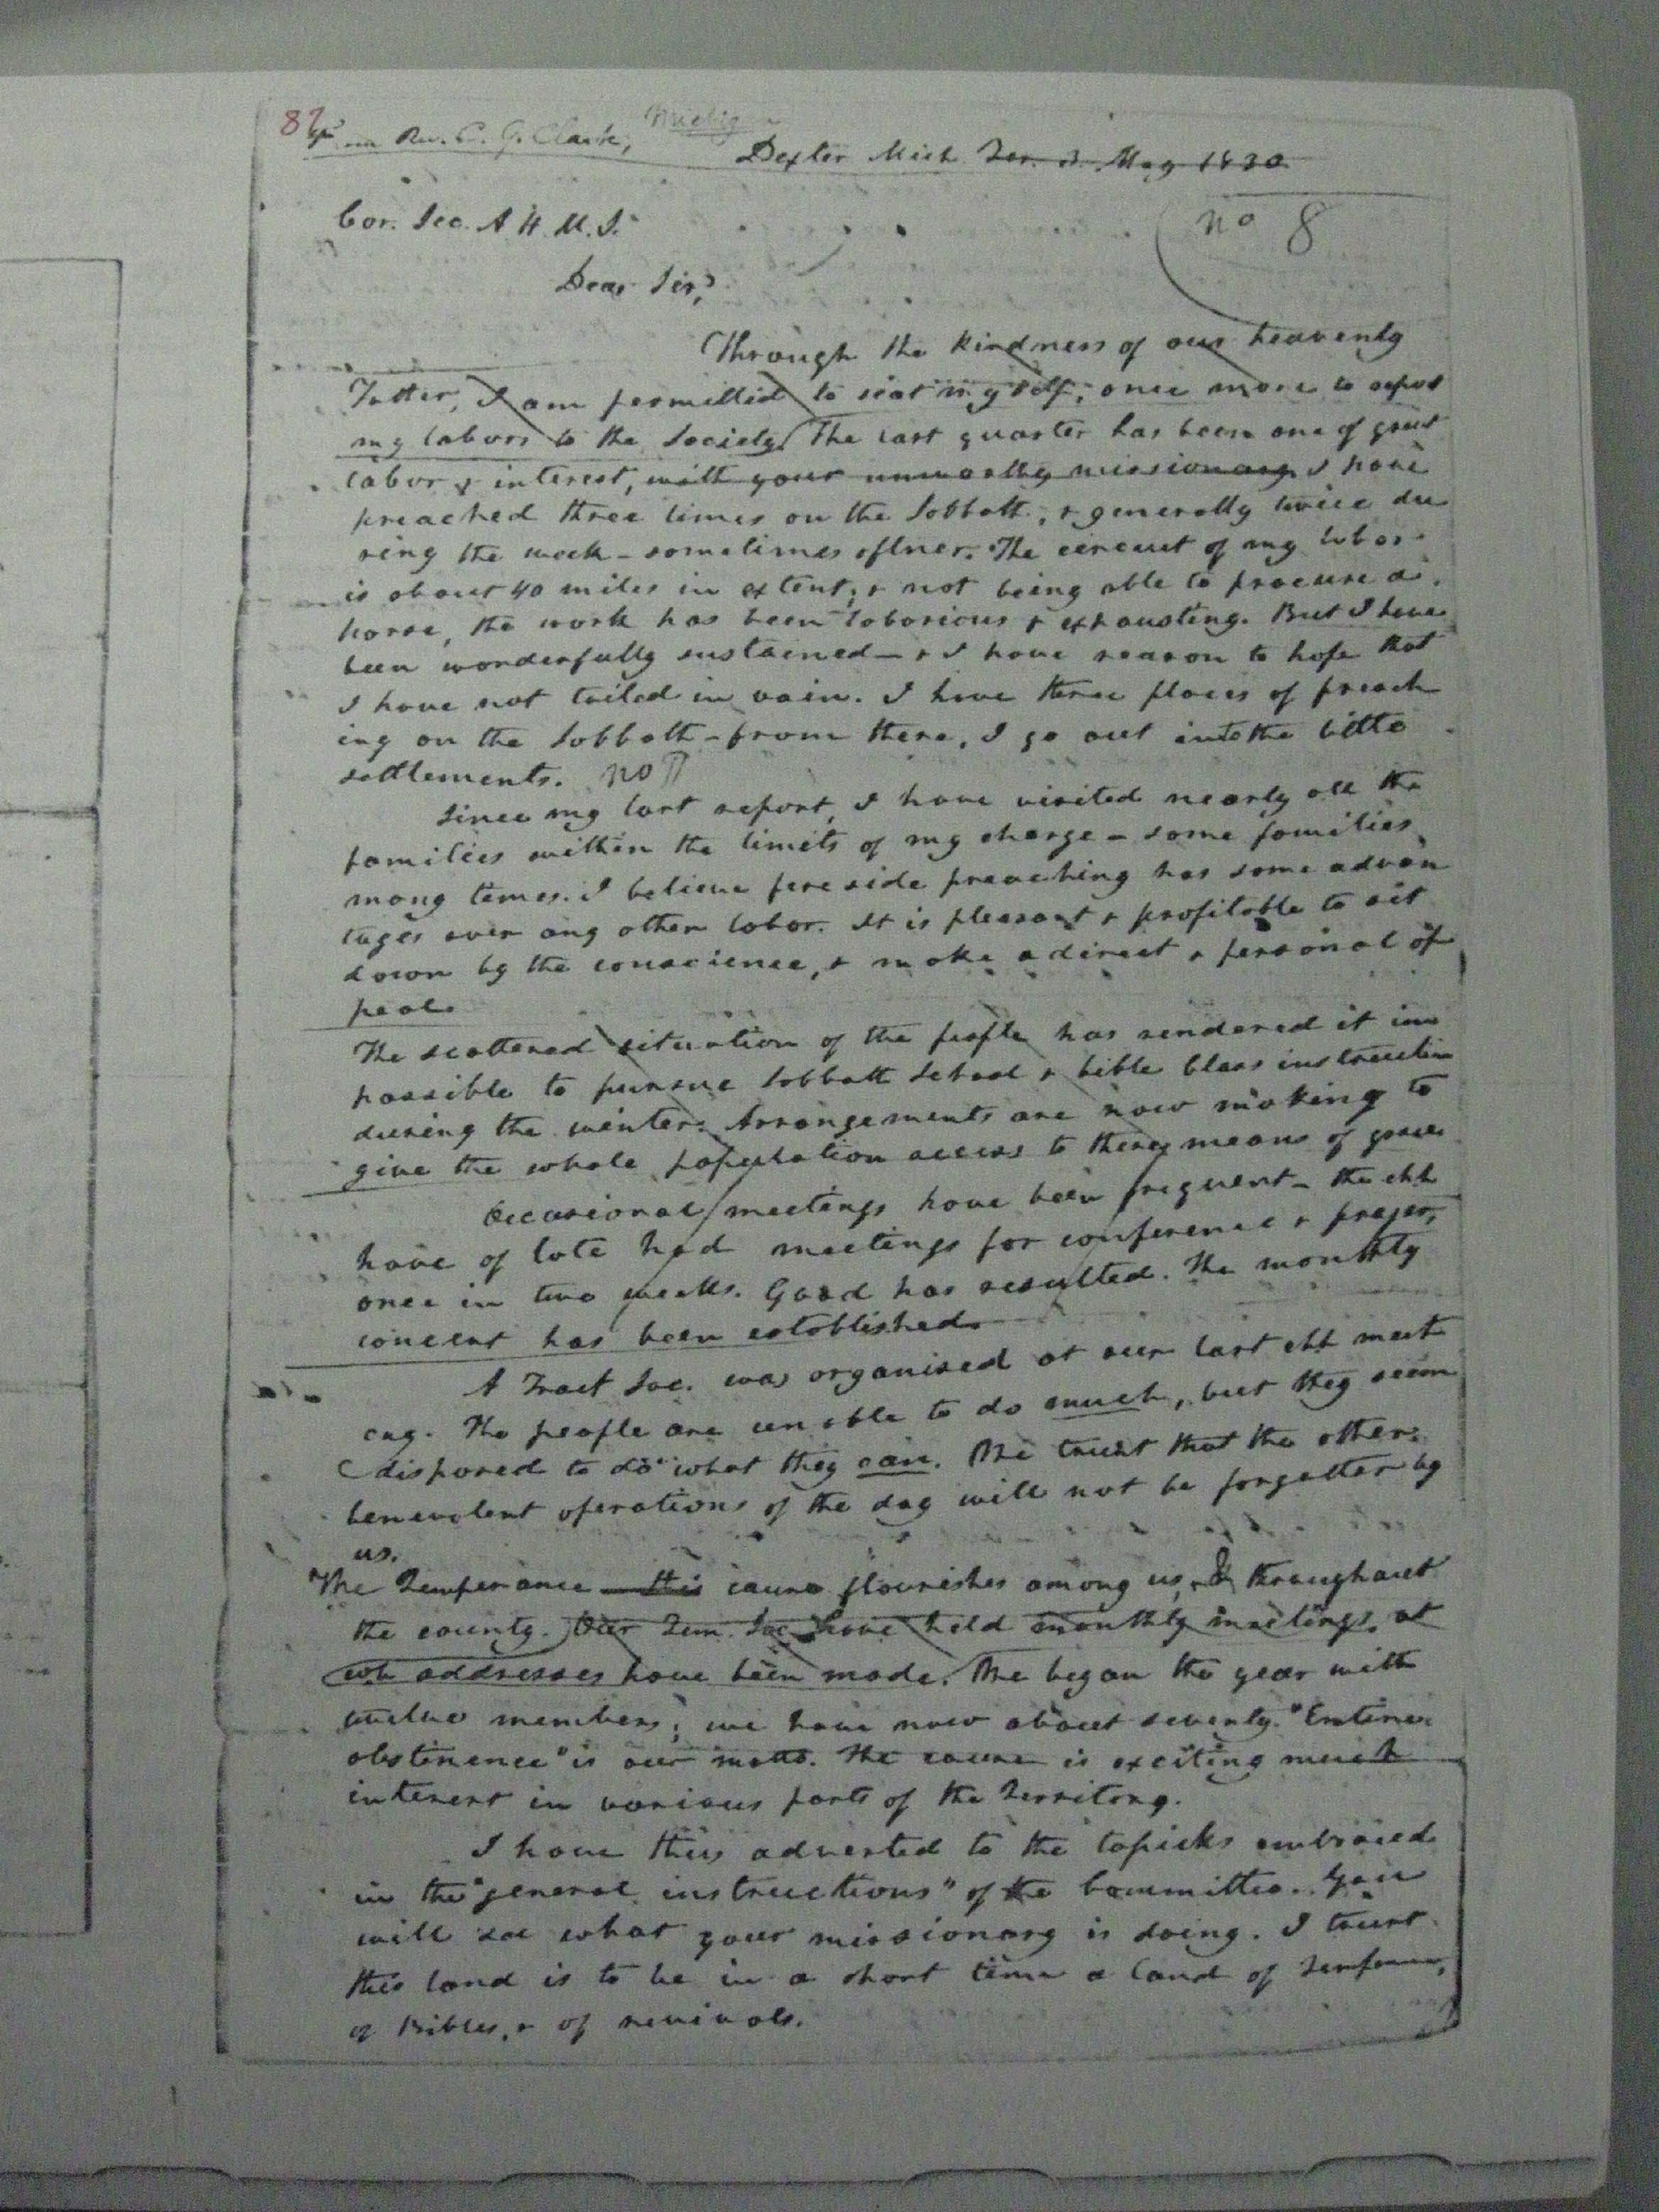 82
Rev. C. G. Clark, Michig
Dexter Mich. Ter. 3. May 1830
Cor. Sec. A H. M. S.
no 8
Dear Sir,
Through the kindness of our heavenly
Father, I am permitted to seat myself, once more to report
my labors to the Society. The last quarter has been one of great
labor & interest, with your unworthy missionary. I have
preached three times on the Sabbath, & generally twice du
ring the week - sometimes oftner. The circuit of my labors
is about 40 miles in extent, & not being able to procure a
horse, the work has been laborious & exhausting. But I have
been wonderfully sustained - & I have reason to hope that
I have not toiled in vain. I have three places of preach
ing on the Sabbath - from these, I go out into the little
settlements. no ¶
Since my last report, I have visited nearly all the
families within the limits of my charge - some families
many times. I believe fire side preaching has some advan
tages over any other labor. It is pleasant & profitable to sit
down by the conscience, & make a direct & personal ap
peal.
The scattered situation of the people has rendered it im
possible to pursue Sabbath School & bible Class instruction
during the winter. Arrangements are now making to
give the whole population access to these means of grace
Occasional meetings have been frequent - the chh
have of late had meetings for conference & prayer,
once in two weeks. Good has resulted. The monthly
concert has been established.
A Tract Soc. was organised at our last chh meet
ing. The people are unable to do much, but they seem
disposed to do what they can. We trust that the other
benevolent operations of the day will not be forgotten by
us.
The Temperance this cause flourishes among us, & throughout
the county. Our Tem. Soc. have held monthly meetings, at
wh addresses have been made. We began the year with
twelve members; we have now about seventy. "Entire
abstinence" is our motto. The cause is exciting much
interest in various parts of the Territory.
I have thus adverted to the topicks embraced
in the "general instructions" of the Committee. You
will see what your missionary is doing. I trust
this land is to be in a short time a land of Temperance,
of Bibles, & of revivals.